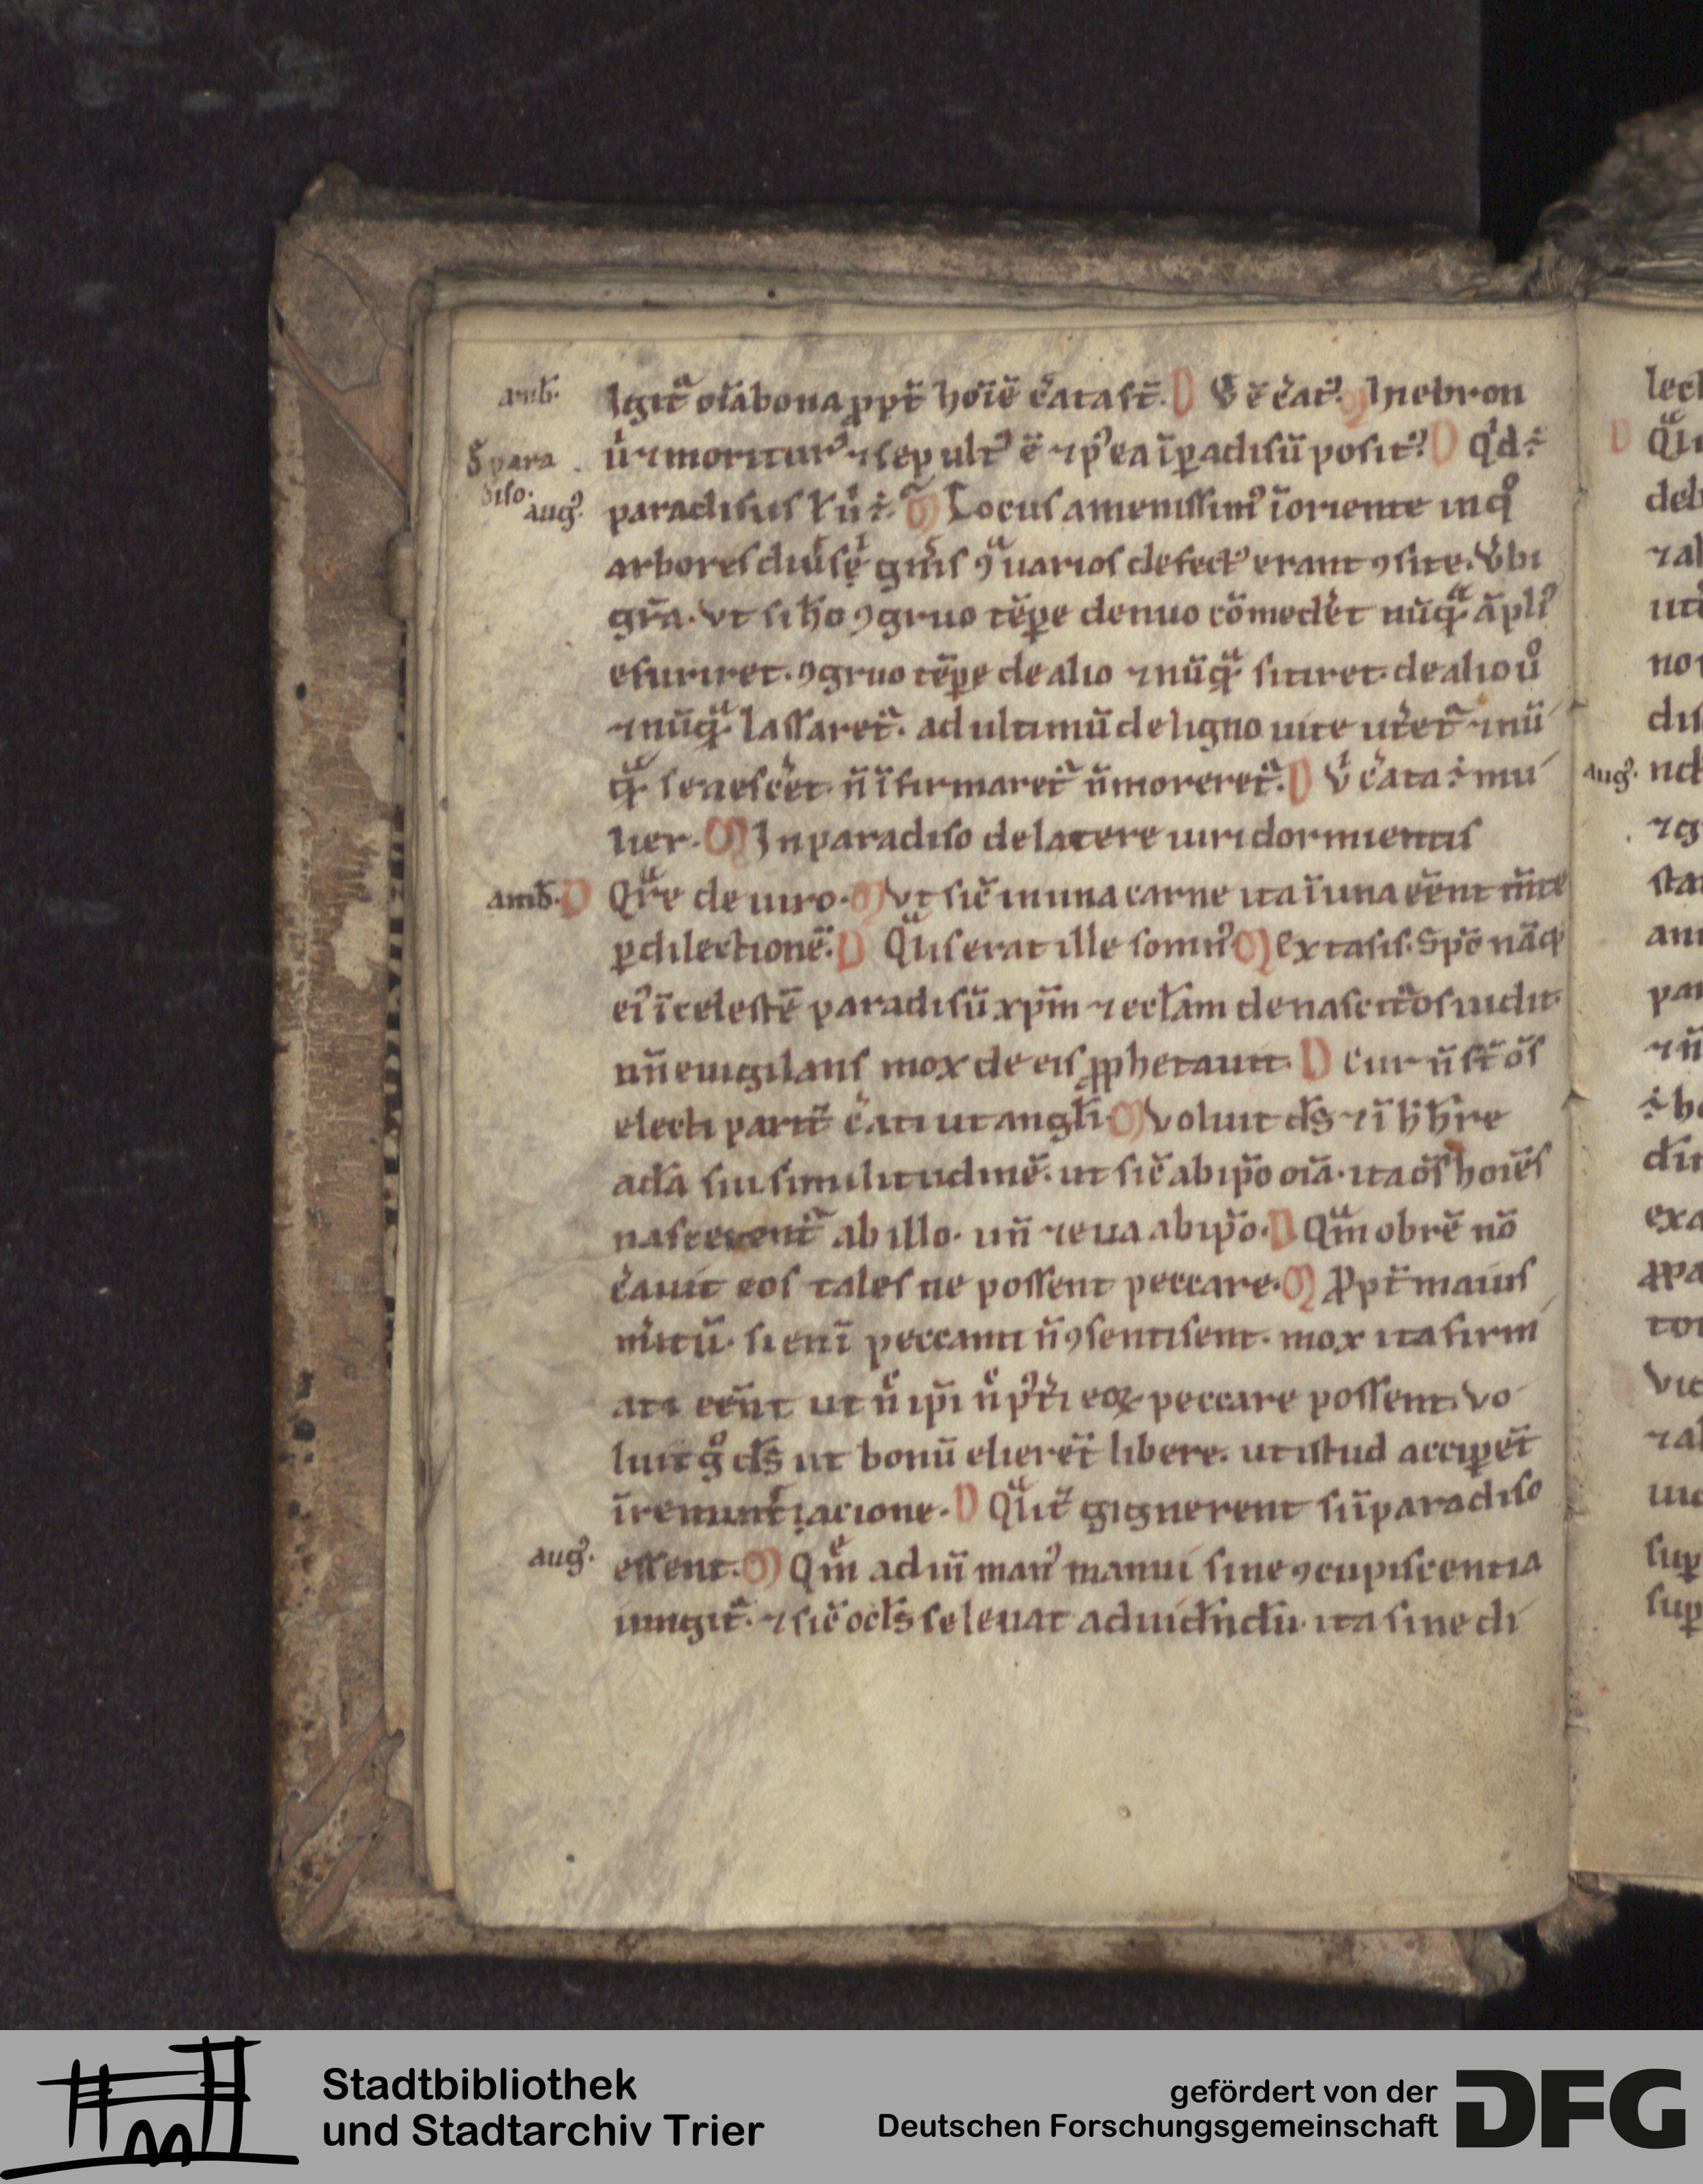 amb.
Igit᷑ oīa bona ꝓpt̄ hoīē c̾ata st̄. D V̾ ē c̾atꝰ. M In ebron
De para
diso.
aug᷒.
ū ⁊ moritur ⁊ sepultꝰ ē ⁊ pꝰ ea ī ꝑadisū positꝰ. D Qͥd ÷
paradisus ł u͛ ÷. M Locus amenissimꝰ ī oriente in qͦ
arbores diu̾se̜ gn̄is ꝯͣ uarios defectꝰ erant ꝯsite. V̾bi
gr̄a. vt si ho ꝯgruo tēꝑe denuo cōmeder̄et nūqͣ āpliꝰ
esuriret. ꝯgruo tēꝑe de alio ⁊ nūqͣ sitiret. de alio uͦ
⁊ nūqͣ lassaret᷑. ad ultimū de ligno uite uteret᷑ ⁊ nū
qͣ senescer̄et n̄ īfirmaret᷑ n̄ moreret᷑. D V̾ c̾ata ÷ mu
lier. M In paradiso de latere uiri dormientis
amb. D Qͣre de uiro. M vt sic̄ in una carne ita ī una ee̅nt m̄te
ꝑ dilectionē. D Qͣlis erat ille somnꝰ M extasis. Sp̄c nāqꝫ
eiꝰ ī celestē paradisū xp̄m ⁊ eccłam de nascit᷑os uidit.
un̄ euigilans mox de eis ꝓphetauit. D Cur n̄ st̄ oēs
electi parit̄ c̾ati ut angłi. M Voluit dš ⁊ ī h̄ hr̄e
ada sui similitudinē. ut sic̄ ab ip̄o oīa. ita oēs hoīēs
nascerent᷑ ab illo. un̄ ⁊ eua ab ip̄o. D Qͣm ob rē nō
c̾auit eos tales ne possent peccare. M Ꝓpt̄ maius
mͥitū. si enī peccanti n̄ ꝯsentisent. mox ita firm
ati ee̅nt ut nͨ ip̄i nͨ pꝰt̄i eoꝝ peccare possent. Vo
luit gͦ dš ut bonū eligeret᷑ libere. ut istud acciꝑet᷑
ī remuneracione. D Qͣlit̄ gignerent si ī paradiso
aug᷒.
essent. M Qͣm ad modū manꝰ manui sine ꝯcupiscentia
iungit᷑. ⁊ sic̄ ocłs se leuat ad uidn̄dū. ita sine di
lec
D Qͣ
del
⁊ al
uti
no
dis
aug᷒. nd
⁊ g
sta
ani
par
⁊ n̄
÷ h
di
exa
ꝓpa
tor
Vic
⁊ al
uid
suꝑ
suꝑ
Stadtbibliothek
und Stadtarchiv Trier
gefördert von der
Deutschen Forschungsgemeinschaft
DFG